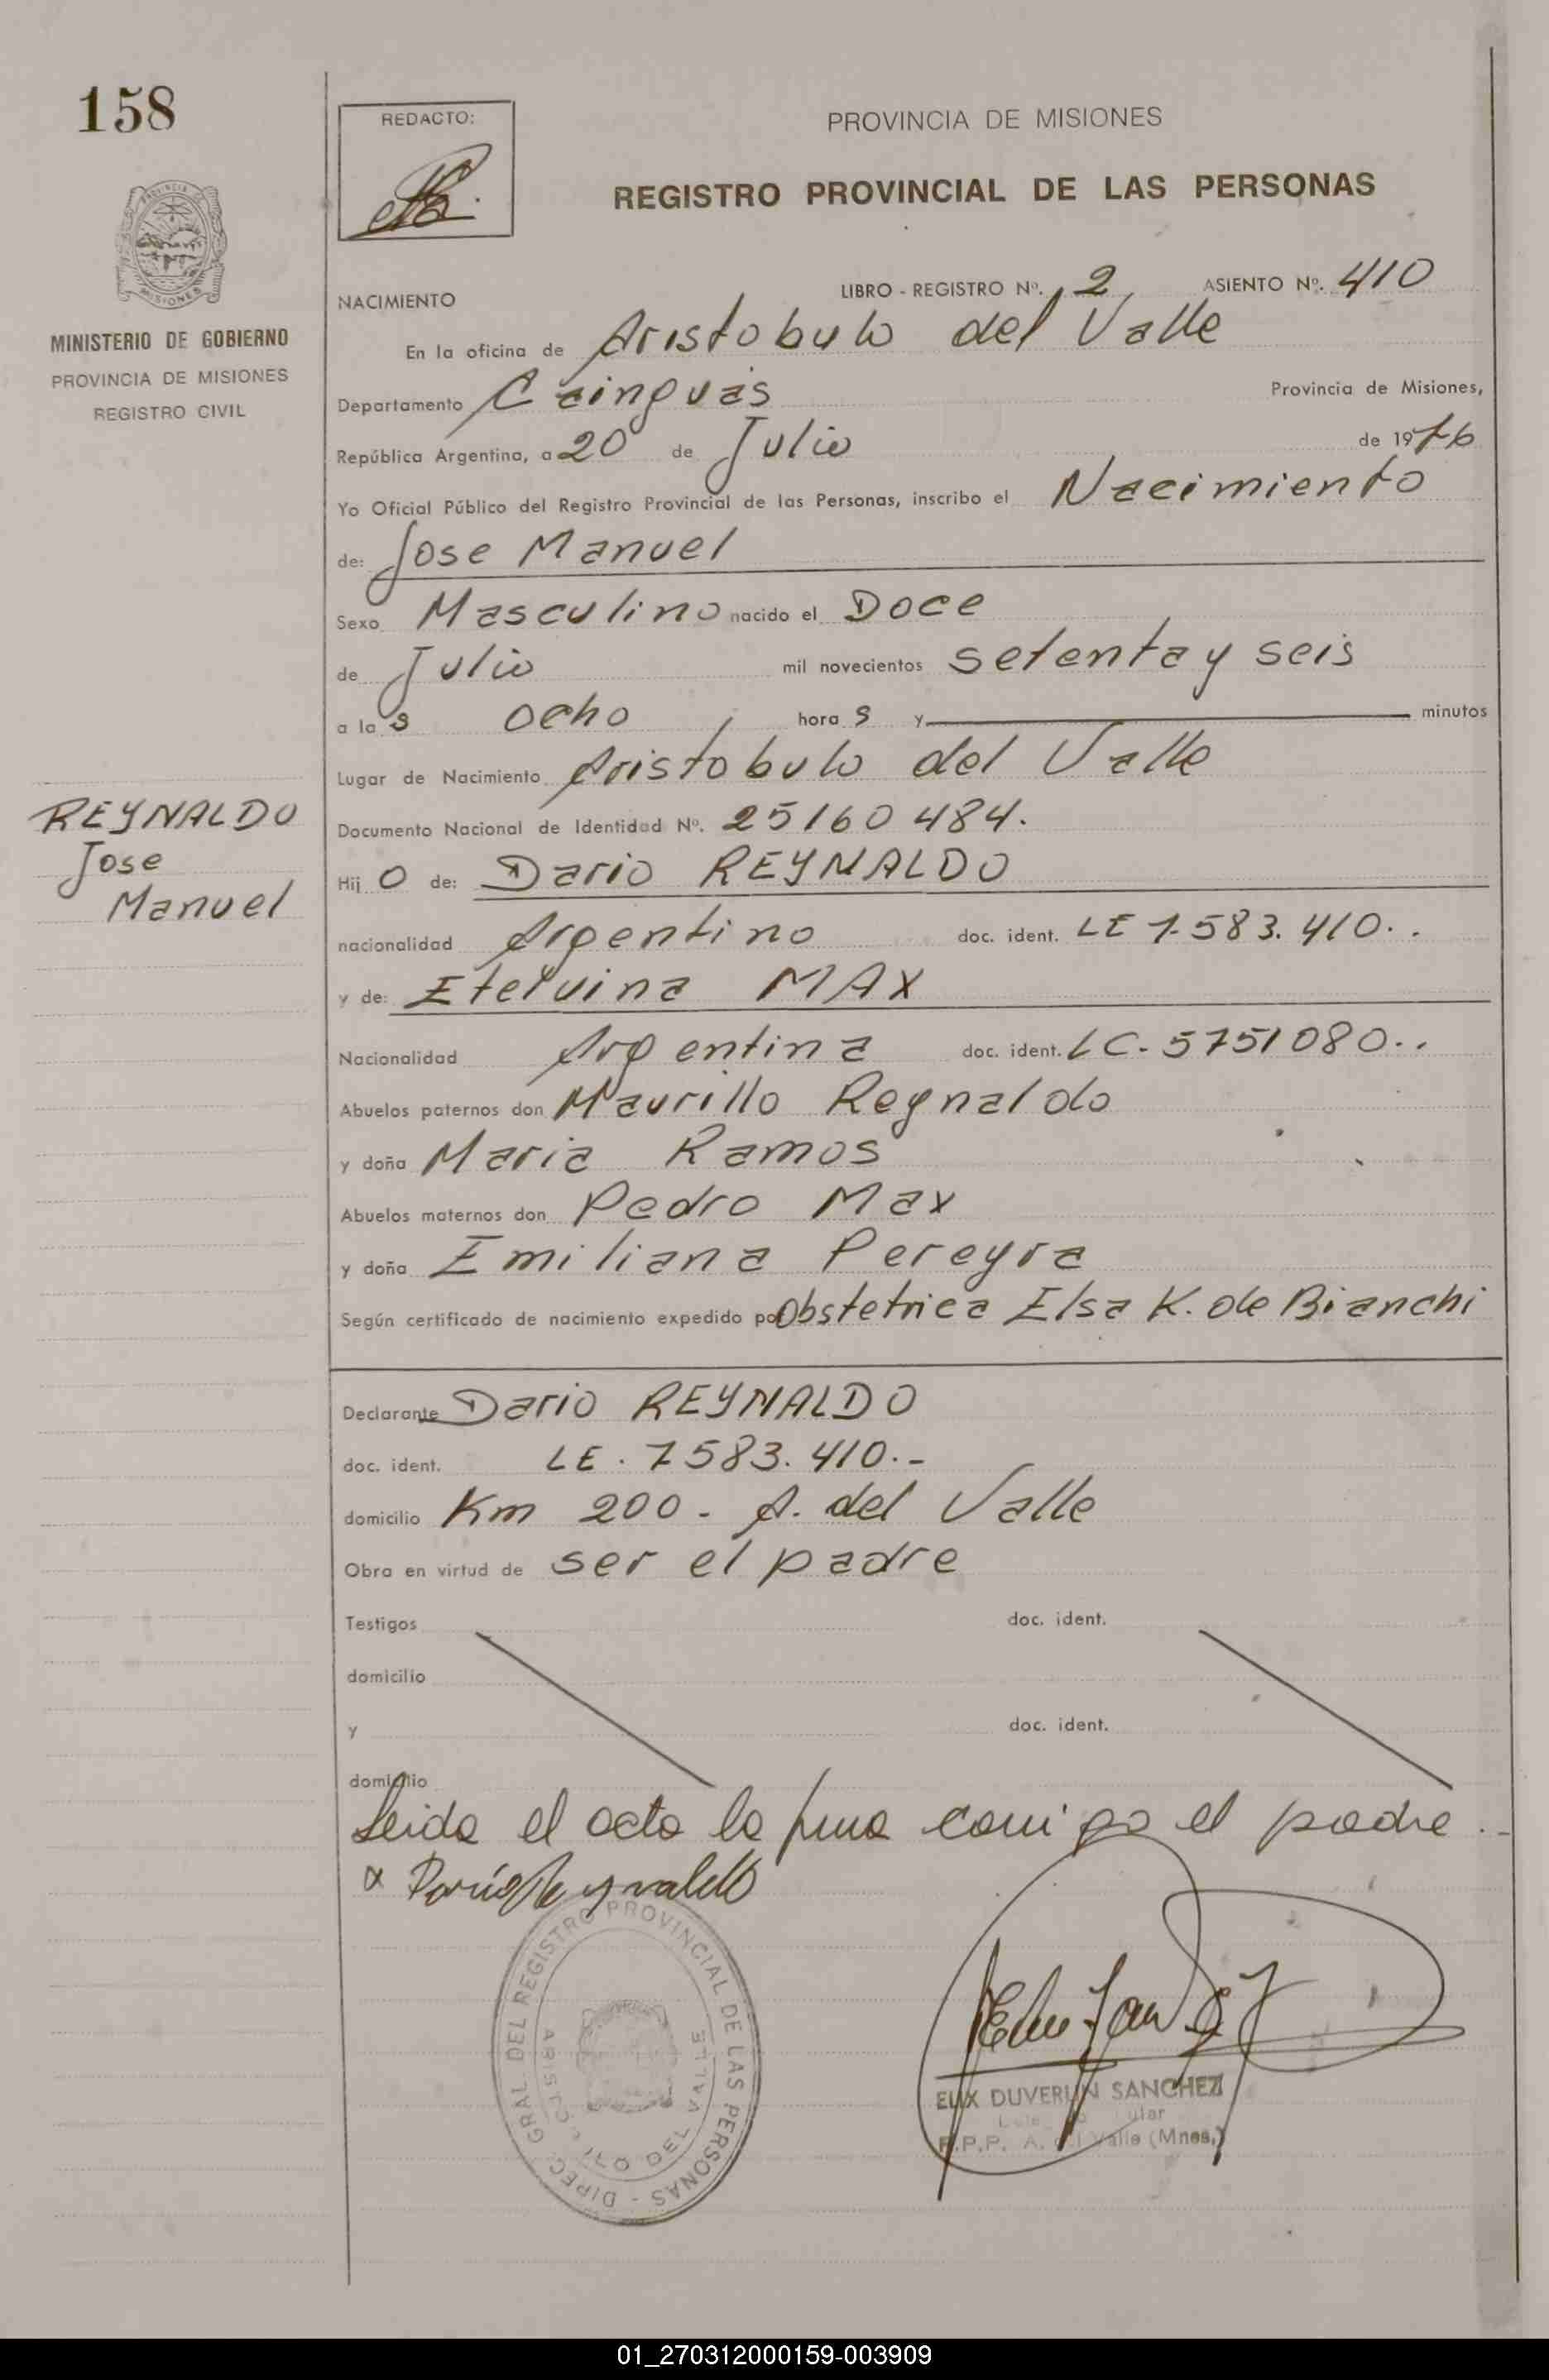 158
REDACTO:
PROVINCIA DE MISIONES
REGISTRO PROVINCIAL DE LAS PERSONAS
MINISTERIO DE GOBIERNO
PROVINCIA DE MISIONES
REGISTRO CIVIL
LIBRO - REGISTRO Nº. 2 ASIENTO Nº. 410
NACIMIENTO
En la oficina de Aristobulo del Valle
Departamento Cainguás Provincia de Misiones,
República Argentina, a 20 de Julio de 1976
Yo Oficial Público del Registro Provincial de las Personas, inscribo el Nacimiento
de: Jose Manuel
Sexo Masculino nacido el Doce
de Julio mil novecientos setenta y seis
a las ocho horas y minutos
Lugar de Nacimiento Aristobulo del Valle
REYNALDO
Jose
Manuel
Documento Nacional de Identidad Nº. 25160484.
Hijo de: Dario REYNALDO
nacionalidad Argentino doc. ident. LE 7.583.410..
y de: Etelvina MAX
Nacionalidad Argentina doc. ident. LC. 5751080..
Abuelos paternos don Maurillo Reynaldo
y doña Maria Ramos
Abuelos maternos don Pedro Max
y doña Emiliana Pereyra
Según certificado de nacimiento expedido por Obstetrica Elsa K. de Bianchi
Declarante Dario REYNALDO
doc. ident. LE. 7583.410.-
domicilio Km 200 - A. del Valle
Obra en virtud de ser el padre
Testigos doc. ident.
domicilio
y doc. ident.
domicilio
Leida el acta la firma conmigo el padre.-
x Darío Reynaldo
DIREC. GRAL. DEL REGISTRO PROVINCIAL DE LAS PERSONAS -
ARISTOBULO DEL VALLE
ELIX DUVERLIN SANCHEZ
R.P.P. A. del Valle (Mnes.)
01_270312000159-003909